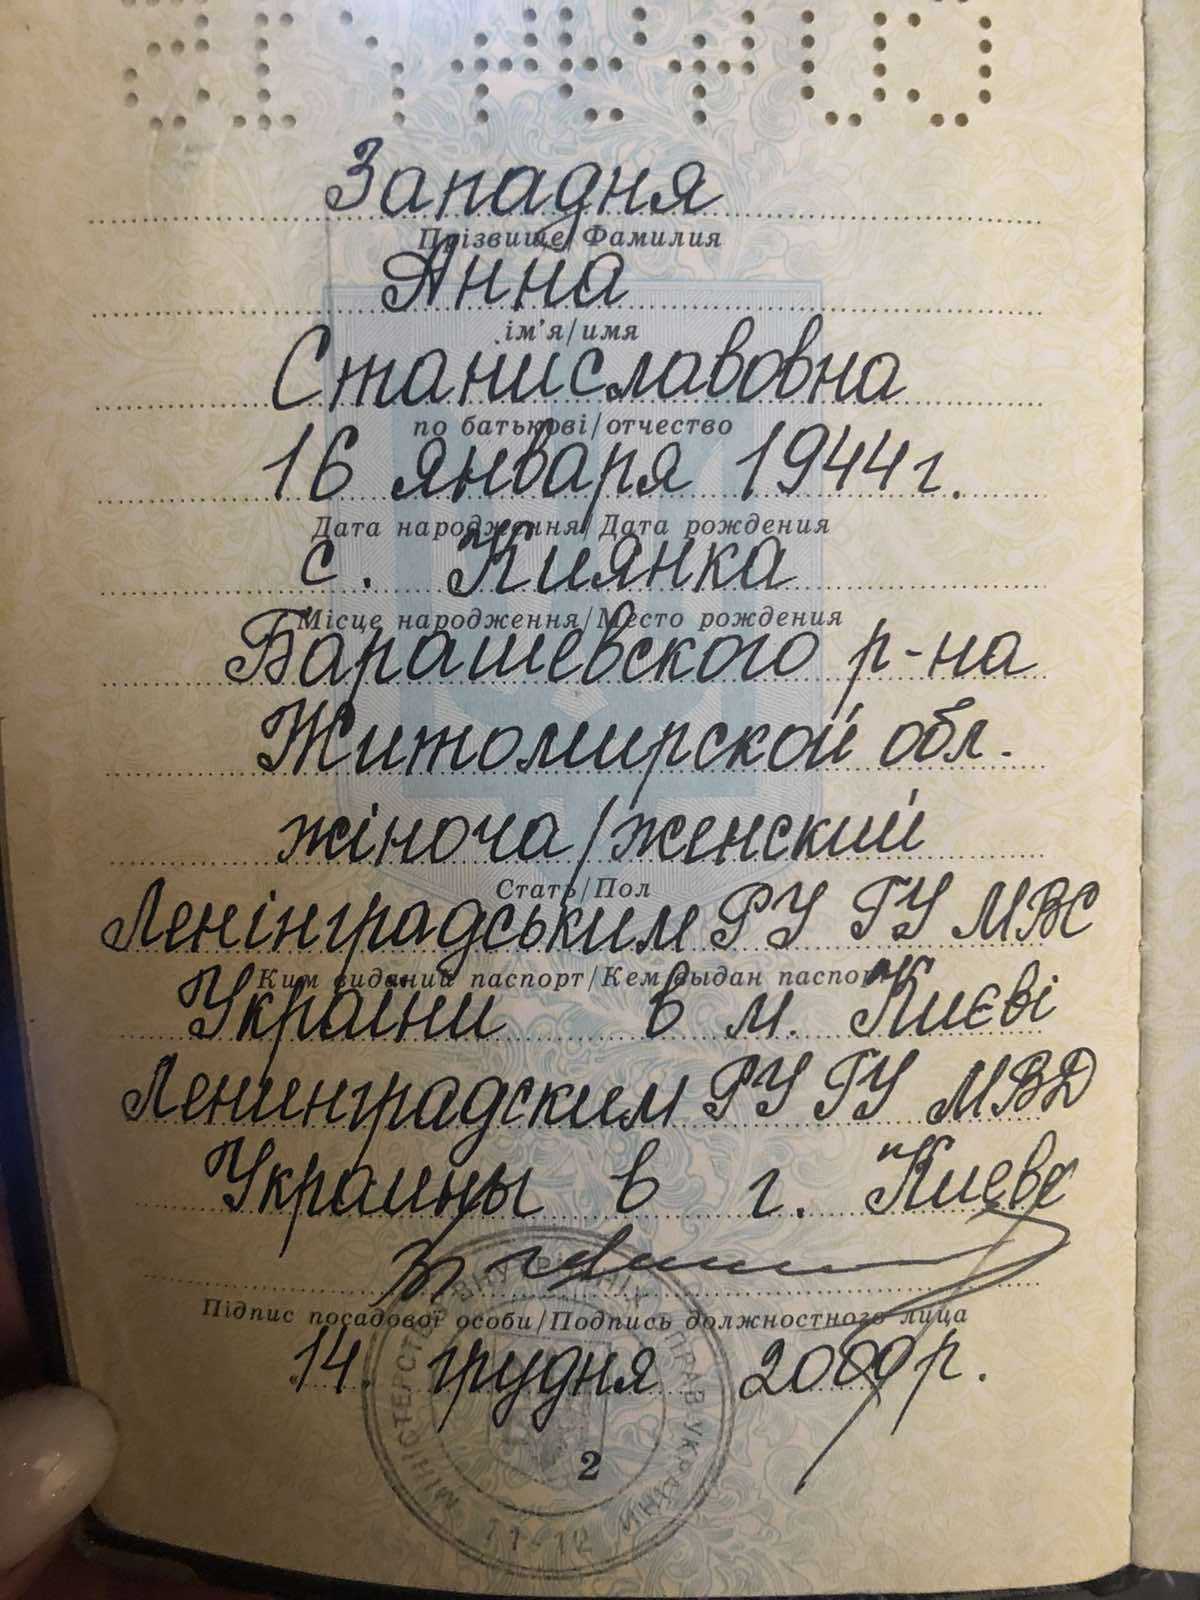 Западня
Прізвище/Фамилия
Анна
ім'я/имя
Станиславовна
по батькові/отчество
16 января 1944г.
Дата народження/Дата рождения
с. Киянка
Місце народження/Место рождения
Барашевского р-на
Житомирской обл.
жіноча/женский
Стать/Пол
Ленінградським РУ ГУ МВС
Ким виданий паспорт/Кем выдан паспорт
України в м. Києві
Ленинградским РУ ГУ МВД
Украины в г. Киеве
Підпис посадової особи/Подпись должностного лица
14 грудня 2000р.
МІНІСТЕРСТВО ВНУТРІШНІХ СПРАВ УКРАЇНИ
2